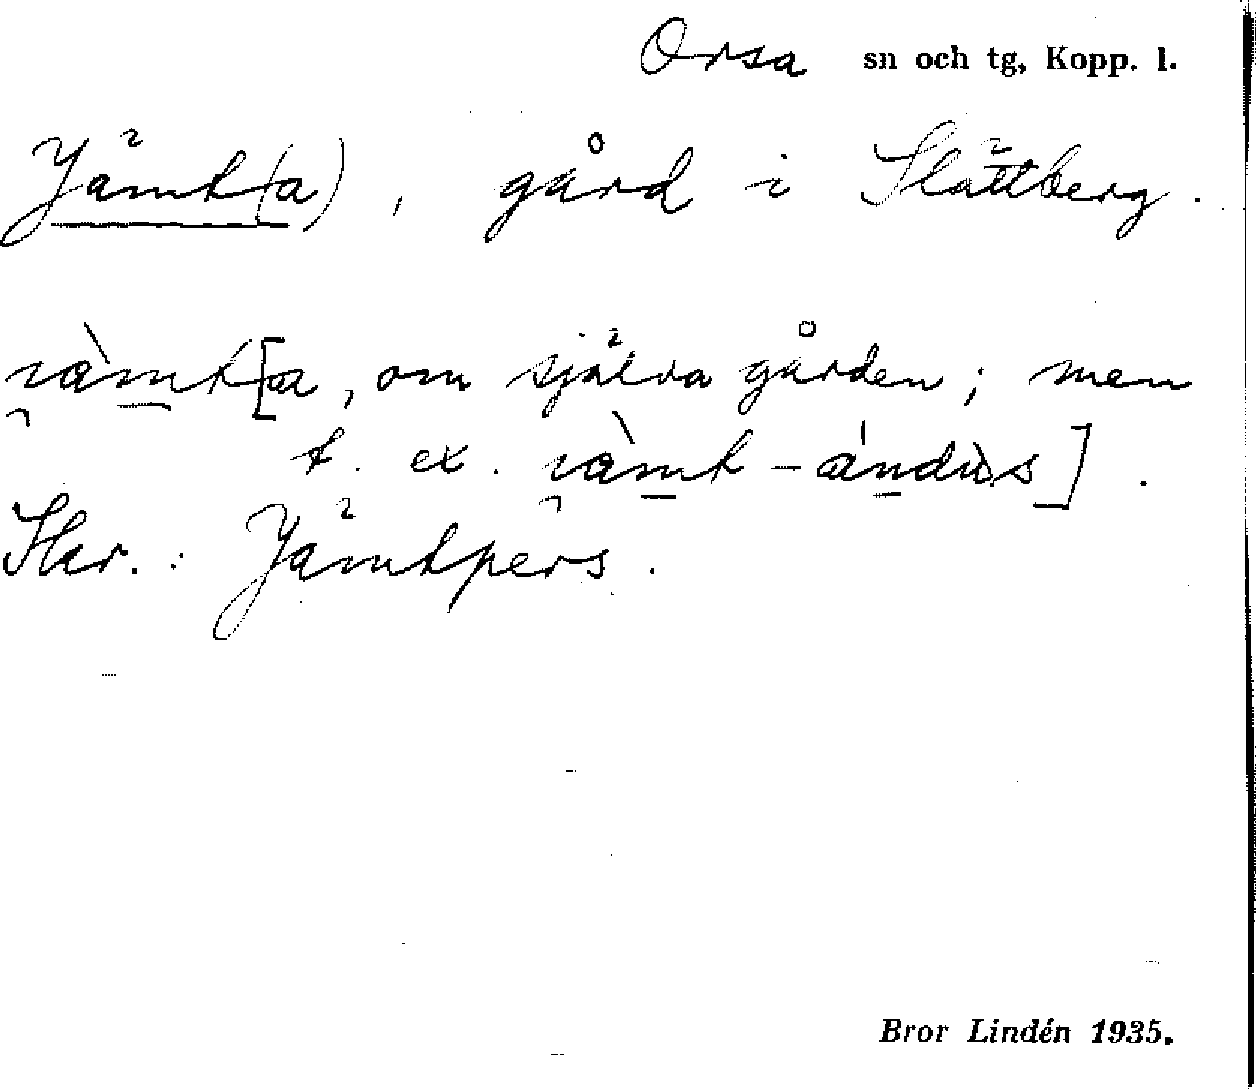 Orsa sn och tg, Kopp. l.
Jämt(a), gård i Slättberg.
om själva gården; men
t. ex.
Skr.: Jämtpers.
Bror Lindén 1935.